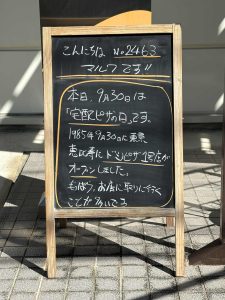 こんにちは No2463
マルフです!!
本日、9月30日は
「宅配ピザの日」です。
1985年9月30日に東京
恵比寿にドミノピザ1号店が
オープンしました。
もっぱら、お店に取りに行く
ことが多いです